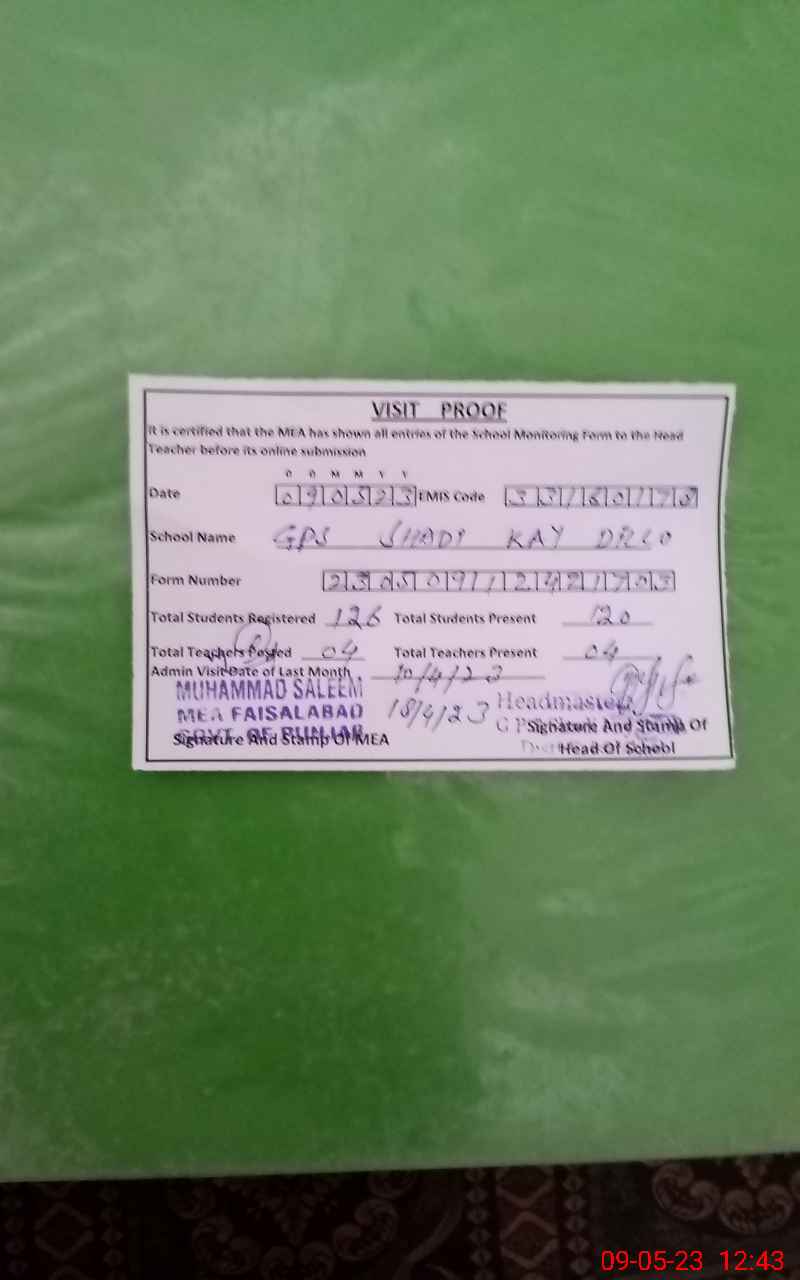 VISIT PROOF
It is certified that the MEA has shown all entries of the School Monitoring Form to the Head
Teacher before its online submission
D D M M Y Y
Date 090523 EMIS Code 33160178
School Name GPS SHADI KAY
Form Number
Total Students Registered 126 Total Students Present 120
Total Teachers Posted 04 Total Teachers Present 04
Admin Visit Date of Last Month 10/4/23
MUHAMMAD SALEEM
MEA FAISALABAD 18/4/23 Headmaster
GOVT. OF PUNJAB
Signature And Stamp Of MEA Signature And Stamp Of
Head Of School
09-05-23 12:43